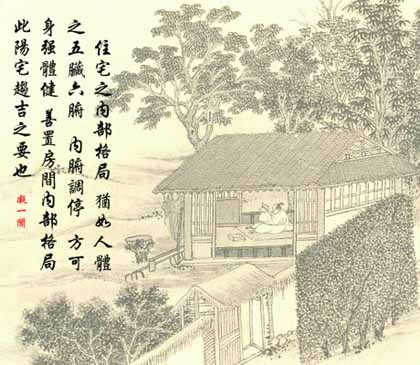 住宅之内部格局 猶如人體
之五臟六腑 内腑調停 方可
身强體健 善置房間内部格局
此陽宅趨吉之要也
凝一閣